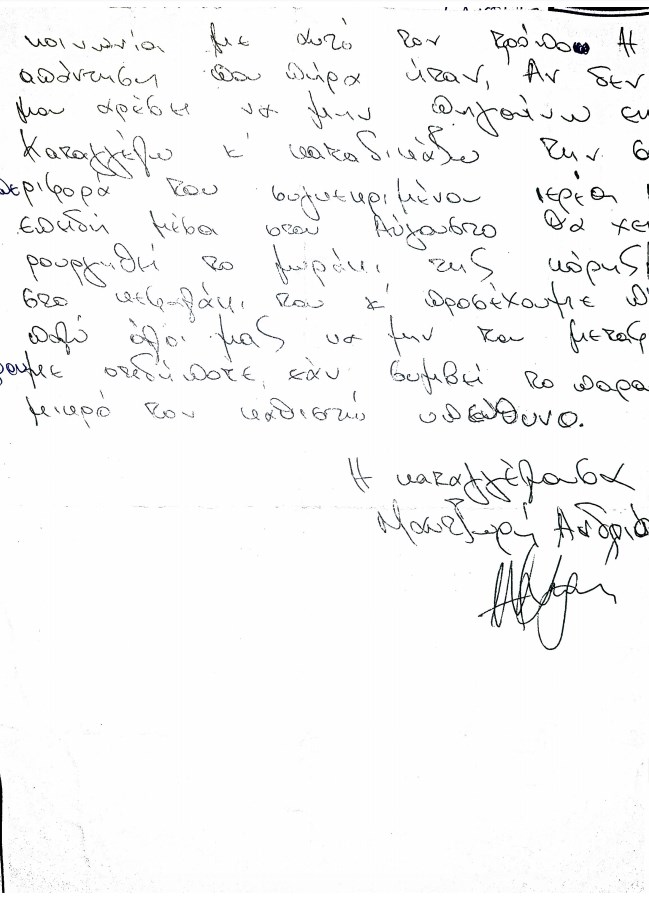 κοινωνία με αυτό τον τρόπο Η
απάντηση που πήρα ήταν, Αν δεν
μου αρέσει να μην πηγαίνω εκ
Καταγγέλω κ' καταδικάζω την σ
περιφορά του συγκεκριμένου ιερέα
επειδή μέσα στον Αύγουστο θα χει
ρουργηθεί το μωράκι της κόρης
στο κεφαλάκι του κ' προσέχουμε π
πολύ όλοι μας να μην του μεταφ
ρουμε οτιδήποτε, εάν συμβεί το παρα
μικρό τον καθιστώ υπεύθυνο.
Η καταγγέλουσα